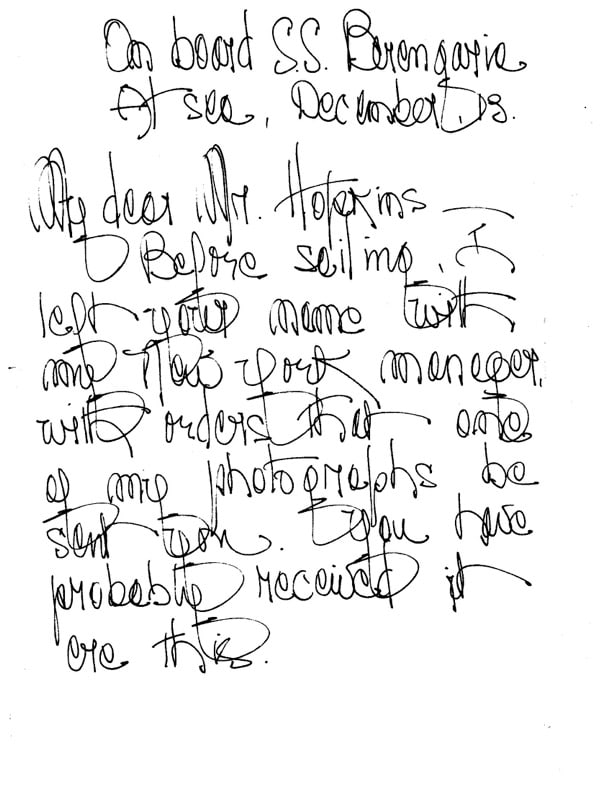 On board S.S. Berengaria
At sea, December, 13.
My dear Mr. Hopkins —
Before sailing, I
left your name with
my New York manager,
with orders that one
of my photographs be
sent you. You have
probably received it
ere this.